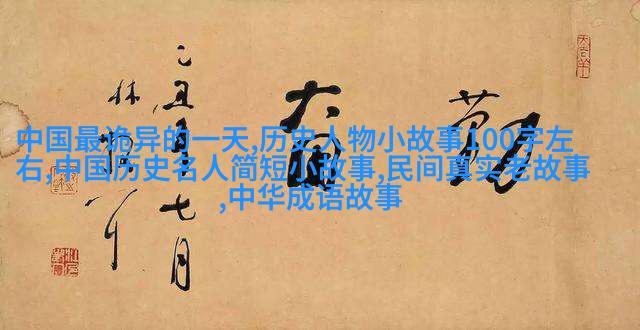 中国最诡异的一天,历史人物小故事100字左
右,中国历史名人简短小故事,民间真实老故事
,中华成语故事
勤
乙丑年七月
林散耳